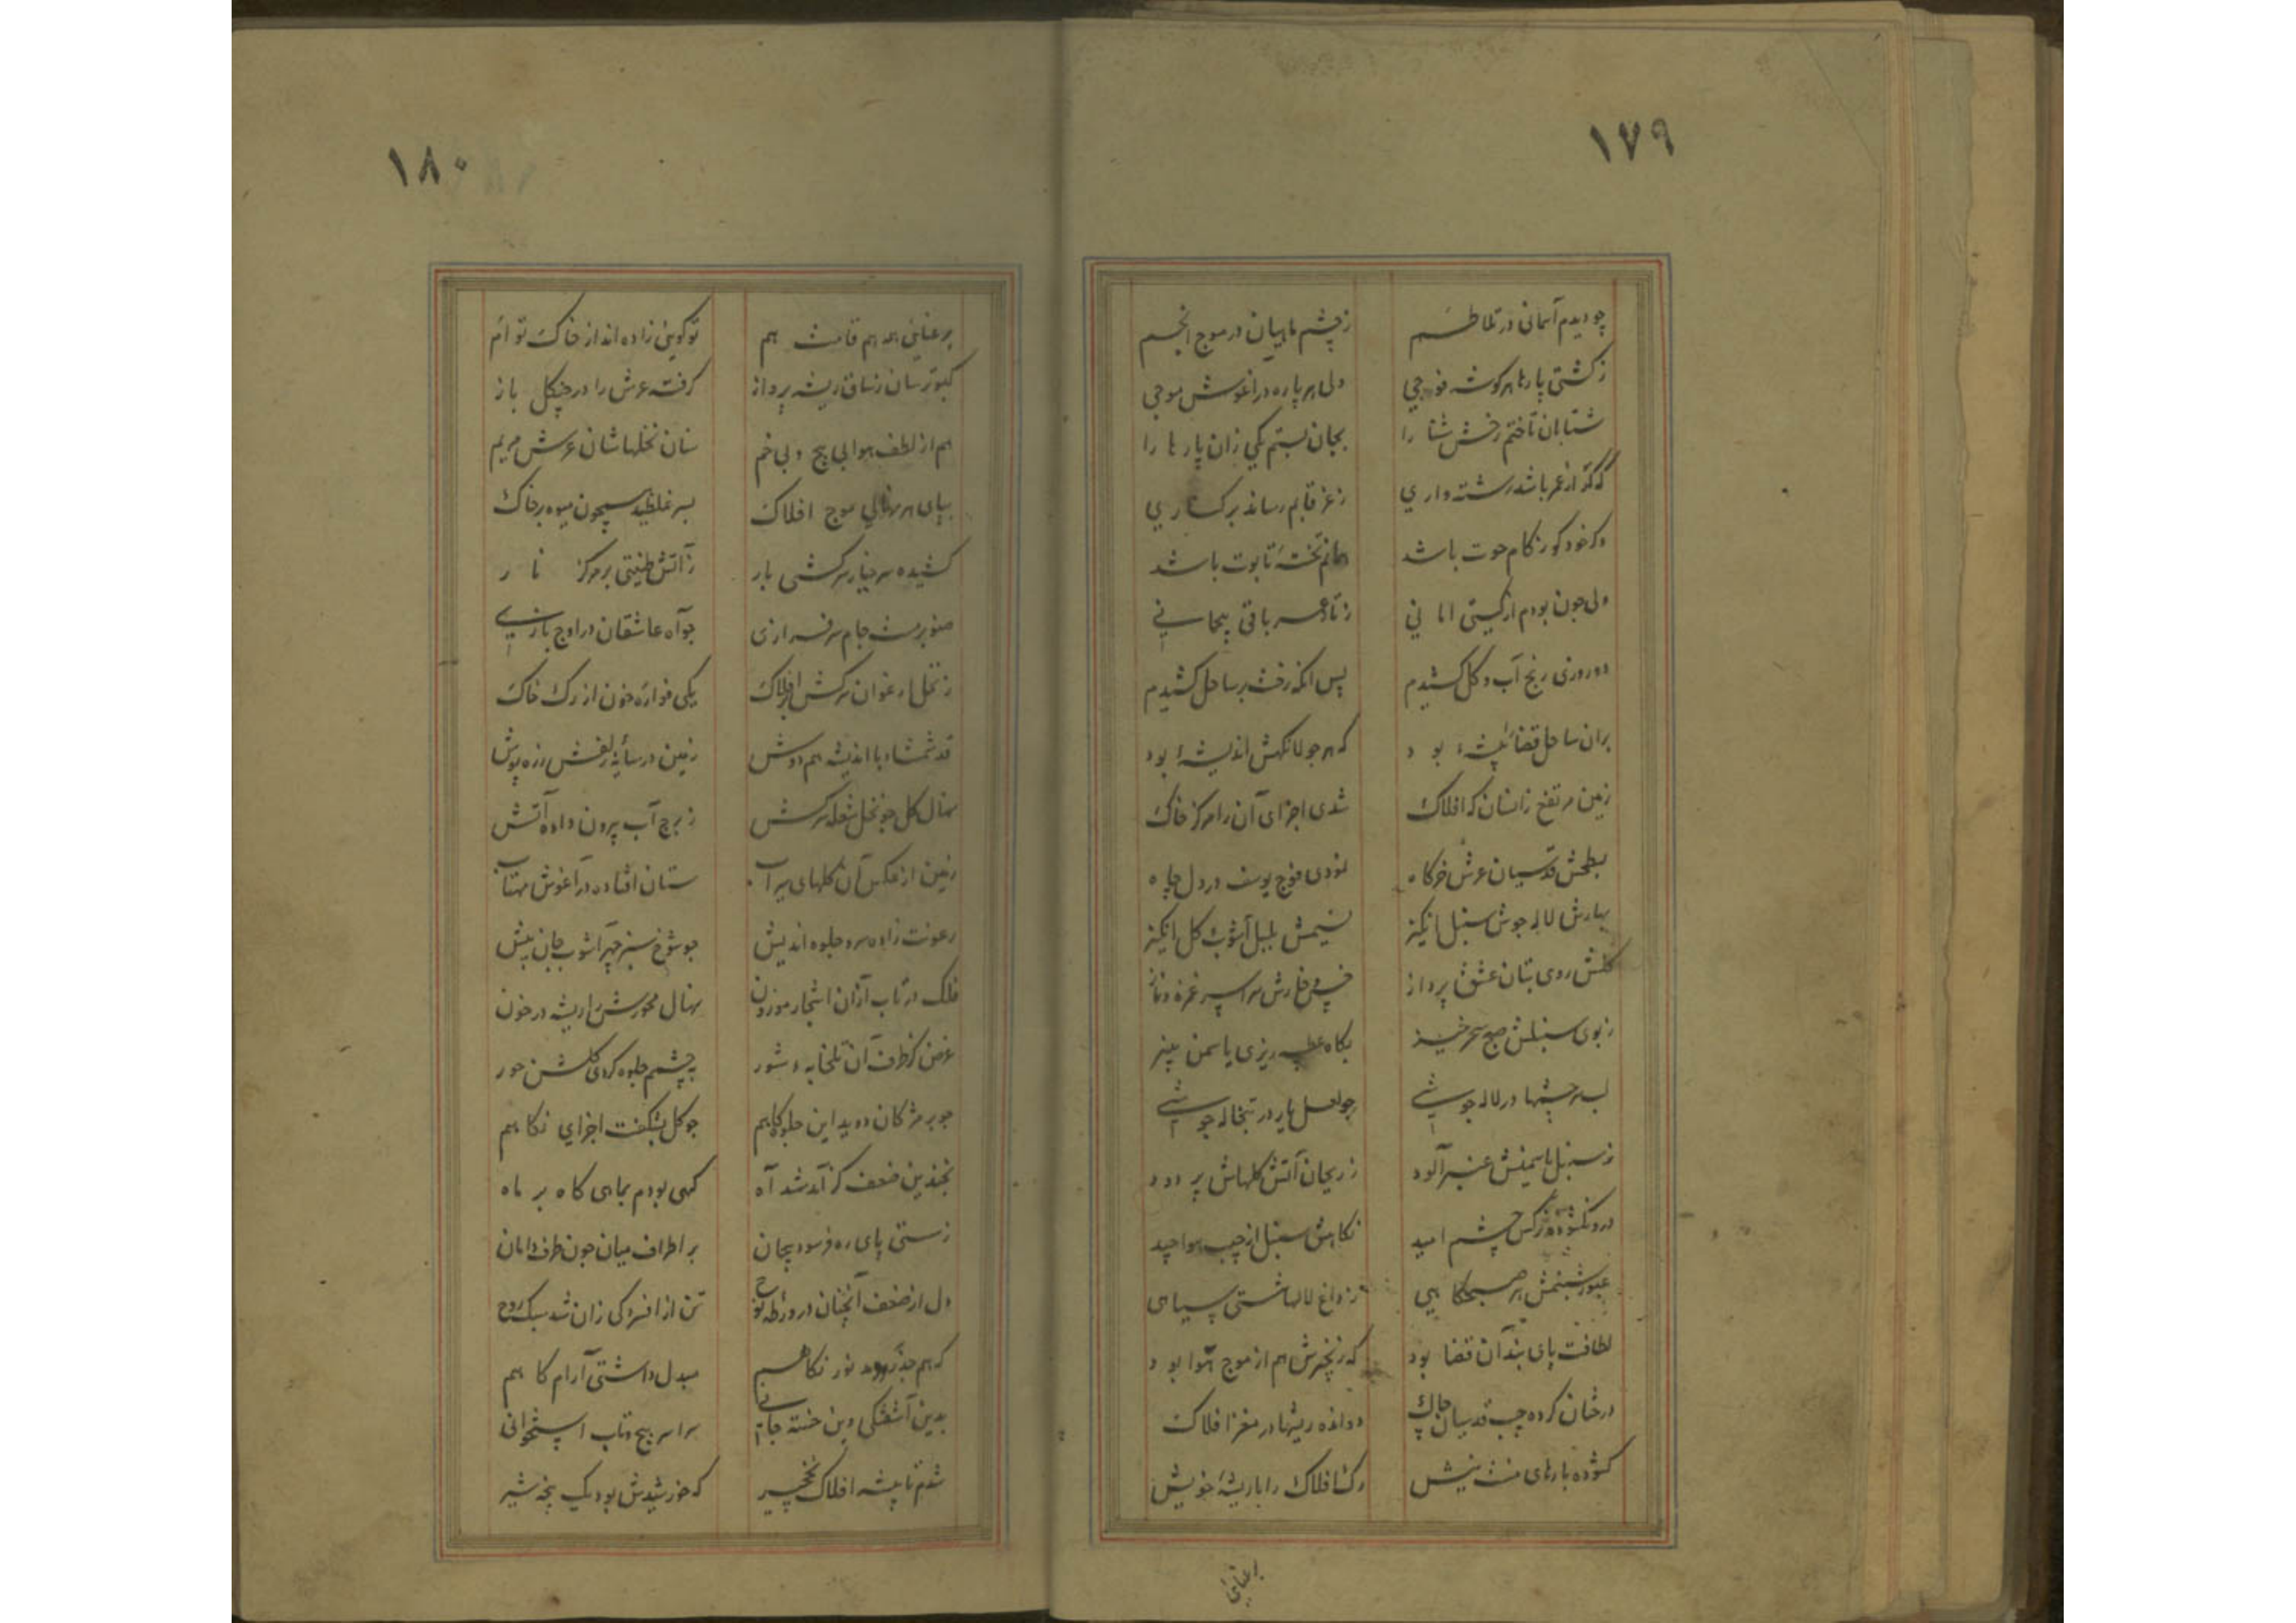 ۱۷۹
چو دیدم آسمانی در تلاطم    ز چشم ماهیان در موج انجم
ز کشتی پارها هر کوشه فوجی    ولی هر پاره در آغوش موجی
شتابان تاختم رخش شنا را    بجان بستم یکی زان پارها را
که کر از عمر باشد رشته واری    ز غرقابم رساند بر کناری
وکر خود کورم کام حوت باشد    همانم تختهٔ تابوت باشد
ولی چون بودم از کیتی امانی    ز تار عمر باقی
دو روزی رنج آب و کل کشیدم    پس انکه رخت بر ساحل کشیدم
بران ساحل قضا را بیشهٔ بود    که هر جولانکهش اندیشهٔ بود
زمین مرتفع زانسان که افلاک    شدی اجزای آن را مرکز خاک
بسطحش قدسیان عرش خرکاه    نمودی فوج یوسف در دل چاه
بهارش لاله جوش سنبل انکیز    نسیمش بلبل آشوب کل انکیز
کلش روی بتان عشق پرداز    خس و خارش سراسر غمزه و ناز
ز بوی سنبلش صبح سحر خیز    بکاه عطر ریزی یاسمن بیز
لب سرچشمها در لاله جوشی    چو لعل یار در تبخاله جوشی
ز سنبل یاسمینش عنبر آلود    ز ریحان آتش کلهاش پر دود
درو نکشوده نرکس چشم امید    نکاهش سنبل از جیب هوا چید
عبور شبنمش هر صبحکاهی    ز داغ لالها شستی سیاهی
لطافت پای بند آن فضا بود    که زنجیرش هم از موج هوا بود
درختان کرده جیب قدسیان چاک    دوانده ریشها در مغز افلاک
کشوده بارهای منت بیش    رک افلاک را با ریشهٔ خویش
برعنایی
۱۸۰
برعنایی همه هم قامت هم    تو کویی زاده اند از خاک توام
کبوترسان ز ساق ریشه پرداز    کرفته عرش را در چنکل باز
هم از لطف هوا بی پیچ و بی خم    سنان نخلهاشان عرش مریم
بپای هر نهالی موج افلاک    بسر غلطید همچون میوه بر خاک
کشیده سر چنار سرکشی بار    ز آتش طینتی بر مرکز نار
صنوبر مست جام سرفرازی    چو آه عاشقان در اوج بازی
ز نخل ارغوان سرکش بر افلاک    یکی فوارهٔ خون از رک خاک
قد شمشاد با اندیشه هم دوش    زمین در سایهٔ زلفش زره پوش
نهال کل چو نخل شعله سرکش    ز برج آب بیرون داده آتش
زمین از عکس آن کلهای سیراب    ستان افتاده در آغوش مهتاب
رعونت زاده سرو جلوه اندیش    چو شوخ سبز چهر آشوب جان بیش
فلک در تاب ازان اشجار موزون    نهال محورش را ریشه در خون
غرض کز طرف آن تلخابهٔ شور    بچشمم جلوه کردی کلشن حور
چو بر مژکان دوید این جلوه کاهم    چو کل بشکفت اجزای نکاهم
بچندین ضعف کز آمد شد آه    کهی بودم بماهی کاه بر ماه
ز سستی پای ره فرسود بیجان    بر اطراف میان چون طرف دامان
دل از ضعف آنچنان در ورطهٔ نوح    تن از افسردکی زان شد سبک روح
که هم جذر و مد نور نکاهم    مبدل داشتی آرام کاهم
بدین آشفتکی وین خسته جانی    سراسر پیچ و تاب استخوانی
شدم تا بیشهٔ افلاک نخچیر    که خورشیدش بود یک پنجه شیر